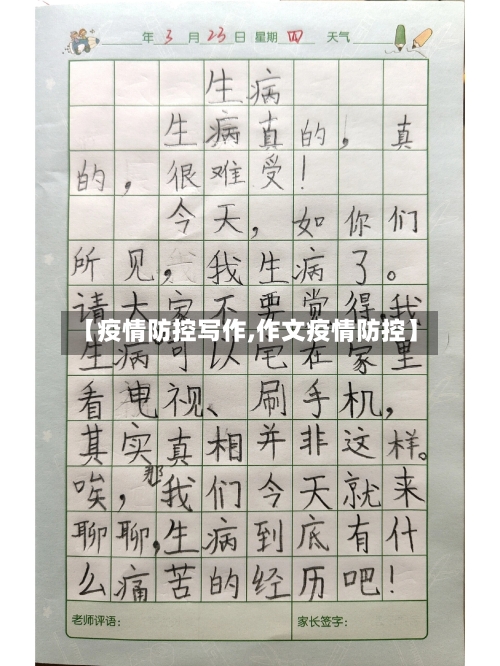 年3月23日 星期四 天气
生病
生病真的，真
的，很难受！
今天，如你们
所见，我生病了。
请大家不要觉得,我
【疫情防控写作,作文疫情防控】
生病可以宅在家里
看电视、刷手机，
其实真相并非这样。
唉，那我们今天就来
聊聊,生病到底有什
么痛苦的经历吧！
老师评语： 家长签字：